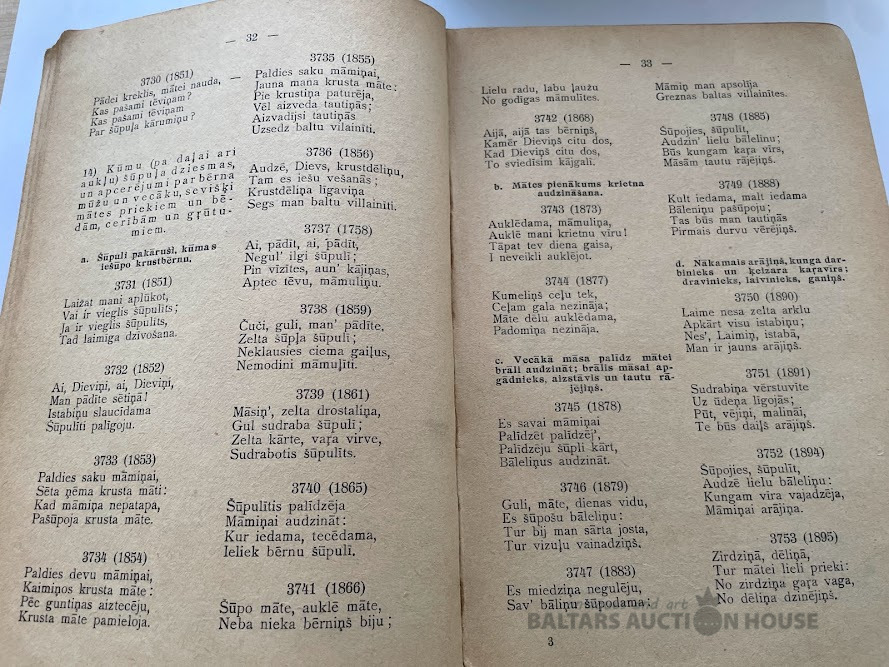 — 32 —
3730 (1851)
Pādei kreklis, mātei nauda, —
Kas pašami tēviņam?
Kas pašami tēviņam
Par šūpuļa kārumiņu?
14) Kūmu (pa daļai ari
aukļu) šūpuļa dziesmas,
un apcerējumi par bērna
mūžu un vecāku, sevišķi
mātes priekiem un bē-
dām, cerībām un grūtu-
miem.
a. Šūpuli pakāruši, kūmas
iešūpo krustbērnu.
3731 (1851)
Laižat mani aplūkot,
Vai ir vieglis šūpulits;
Ja ir vieglis šūpulits,
Tad laimiga dzīvošana.
3732 (1852)
Ai, Dieviņi, ai, Dieviņi,
Man pādīte sētiņā!
Istabiņu slaucīdama
Šūpulīti palīgoju.
3733 (1853)
Paldies saku māmiņai,
Sēta ņēma krusta māti:
Kad māmiņa nepatapa,
Pašūpoja krusta māte.
3734 (1854)
Paldies devu māmiņai,
Kaimiņos krusta māte:
Pēc guntiņas aiztecēju,
Krusta māte pamieloja.
3735 (1855)
Paldies saku māmiņai,
Jauna mana krusta māte:
Pie krustiņa paturēja,
Vēl aizveda tautiņās;
Aizvadijsi tautiņās
Uzsedz baltu vilainīti.
3736 (1856)
Audzē, Dievs, krustdēliņu,
Tam es iešu vešanās;
Krustdēliņa līgaviņa
Segs man baltu villainīti.
3737 (1758)
Ai, pādīt, ai, pādīt,
Negul' ilgi šūpulī;
Pin vīzītes, aun' kājiņas,
Aptec tēvu, māmuliņu.
3738 (1859)
Čuči, guli, man' pādīte,
Zelta šūpļa šūpulī;
Neklausies ciema gaiļus,
Nemodini māmuļīti.
3739 (1861)
Māsiņ', zelta drostaliņa,
Gul sudraba šūpulī;
Zelta kārte, vaŗa virve,
Sudrabotis šūpulīts.
3740 (1865)
Šūpulītis palīdzēja
Māmiņai audzināt:
Kur iedama, tecēdama,
Ieliek bērnu šūpulī.
3741 (1866)
Šūpo māte, auklē māte,
Neba nieka bērniņš biju;
— 33 —
Lielu radu, labu ļaužu
No godīgas māmulītes.
3742 (1868)
Aijā, aijā tas bērniņš,
Kamēr Dieviņš citu dos,
Kad Dieviņš citu dos,
To sviedīsim kājgalī.
b. Mātes pienākums krietna
audzināšana.
3743 (1873)
Auklēdama, māmuliņa,
Auklē mani krietnu vīru!
Tāpat tev diena gaisa,
I neveikli auklējot.
3744 (1877)
Kumeliņš ceļu tek,
Ceļam gala nezināja;
Māte dēlu auklēdama,
Padomiņa nezināja.
c. Vecākā māsa palīdz mātei
brāli audzināt; brālis māsai ap-
gādnieks, aizstāvis un tautu rā-
jējiņš.
3745 (1878)
Es savai māmiņai
Palīdzēt palīdzēj',
Palīdzēju šūpli kārt,
Bāleliņus audzināt.
3746 (1879)
Guli, māte, dienas vidu,
Es šūpošu bāleliņu:
Tur bij man sārta josta,
Tur vizuļu vainadziņš.
3747 (1883)
Es miedziņa negulēju,
Sav' bāliņu šūpodama:
Māmiņ man apsolīja
Greznas baltas villainītes.
3748 (1885)
Šūpojies, šūpulīt,
Audzin' lielu bālelinu;
Būs kungam kaŗa vīrs,
Māsām tautu rājējiņš.
3749 (1888)
Kult iedama, malt iedama
Bāleniņu pašūpoju;
Tas būs man tautiņās
Pirmais durvu vērējiņš.
d. Nākamais arājiņš, kunga dar-
binieks un ķeizara kaŗavīrs;
dravinieks, laivinieks, ganiņš.
3750 (1890)
Laime nesa zelta arklu
Apkārt visu istabiņu;
Nes', Laimiņ, istabā,
Man ir jauns arājiņš.
3751 (1891)
Sudrabiņa vērstuvite
Uz ūdeņa līgojās;
Pūt, vējiņi, malinäi,
Te būs daiļš arājiņš.
3752 (1894)
Šūpojies, šūpulīt,
Audzē lielu bāleliņu:
Kungam vīra vajadzēja,
Māmiņai arājiņa.
3753 (1895)
Zirdziņā, dēliņā,
Tur mātei lieli prieki:
No zirdziņa gaŗa vaga,
No dēliņa dzinējiņš.
3
BALTARS AUCTION HOUSE